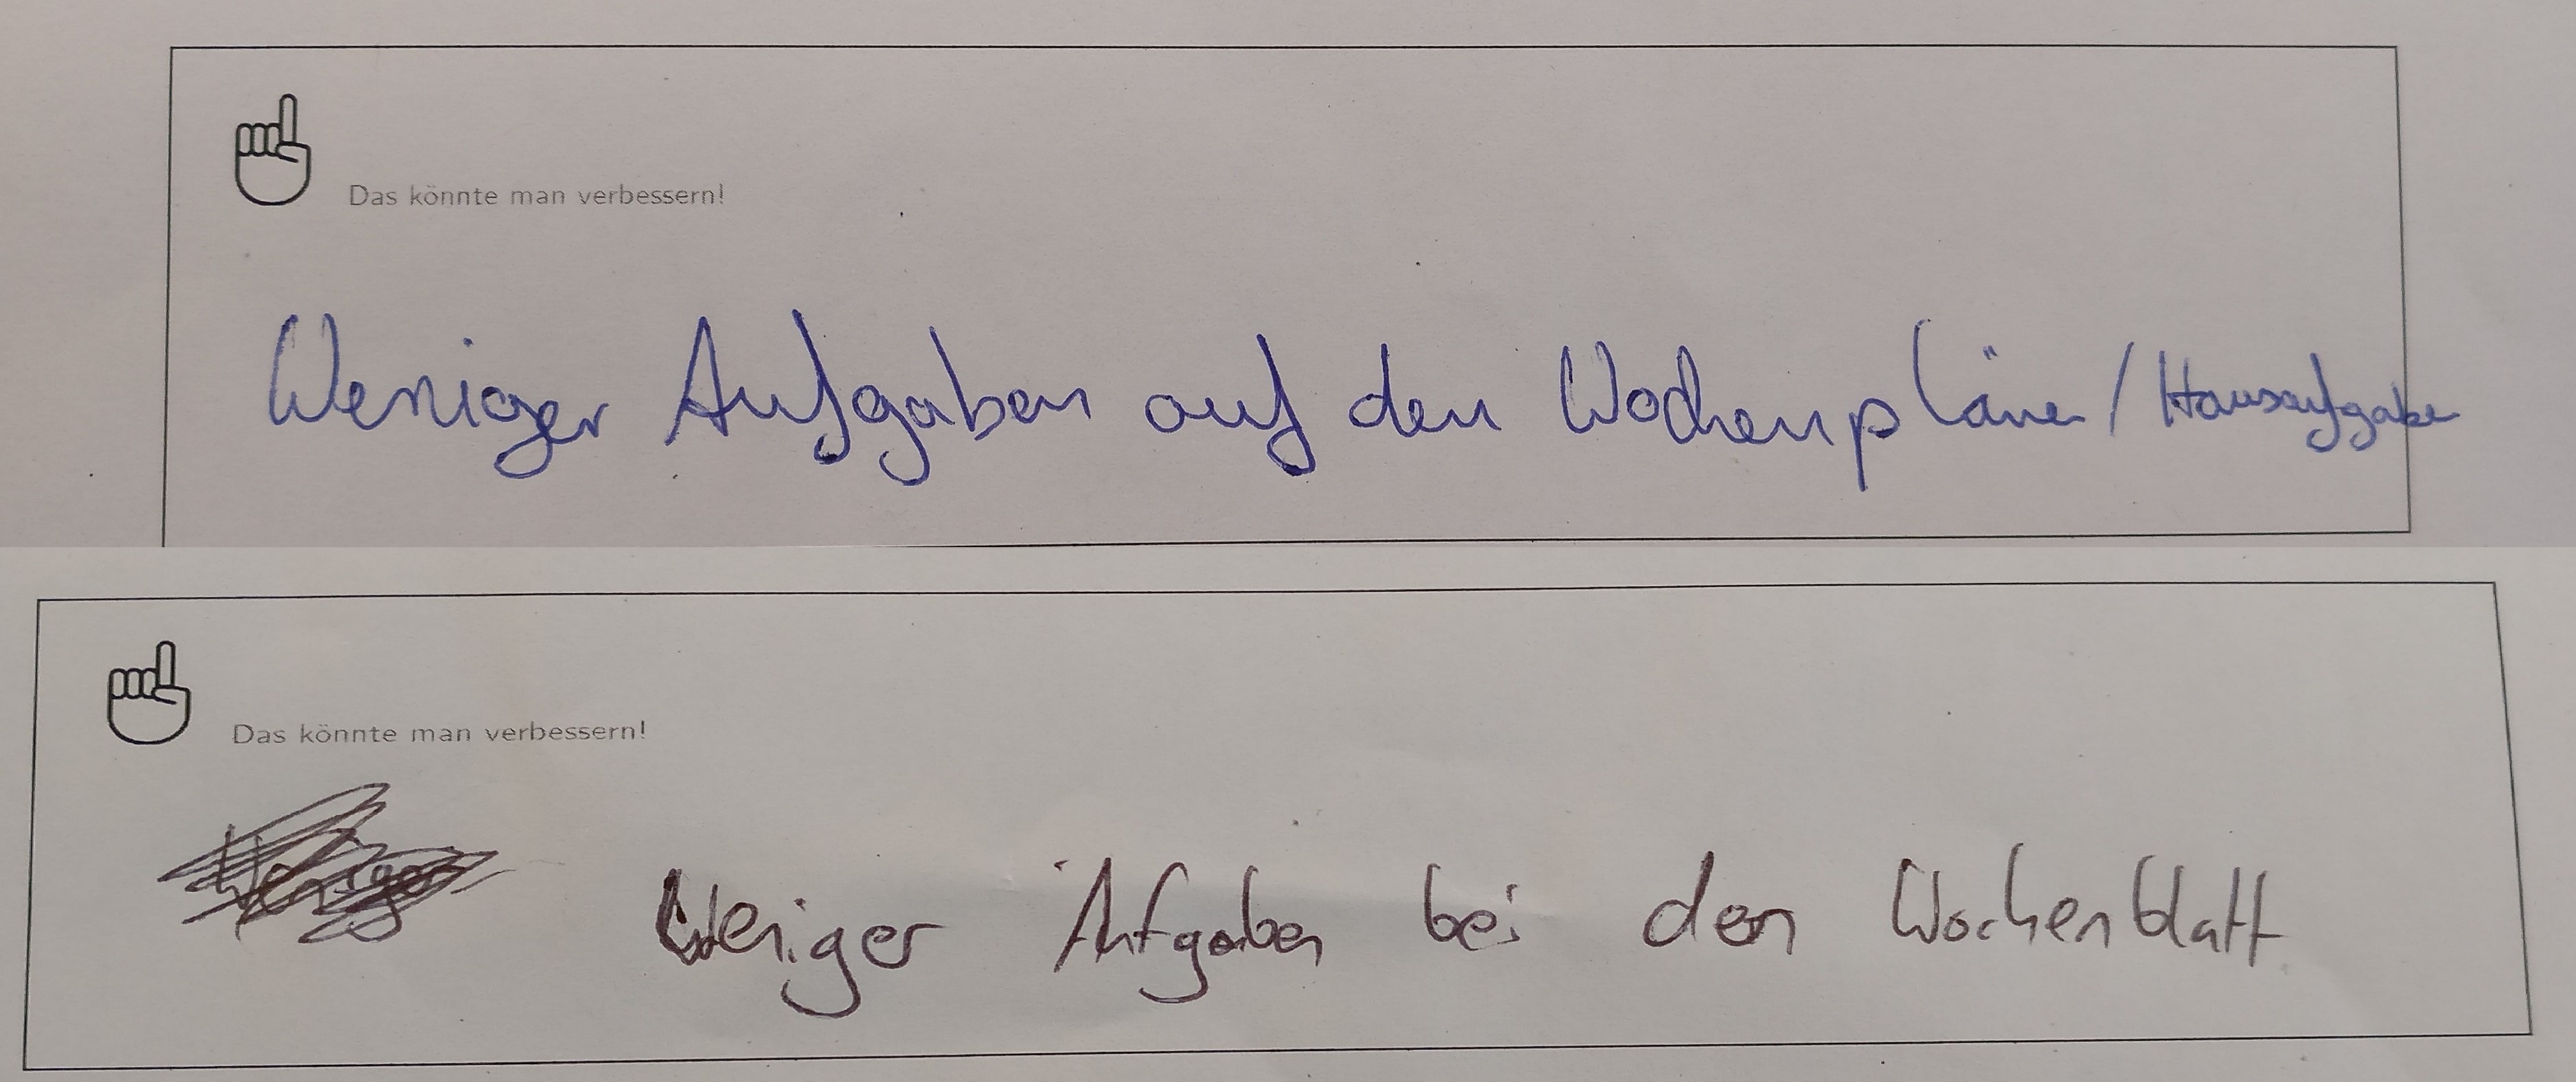 Das könnte man verbessern!
Weniger Aufgaben auf den Wochenpläne / Hausaufgabe
Das könnte man verbessern!
Weniger Aufgaben bei den Wochenblatt